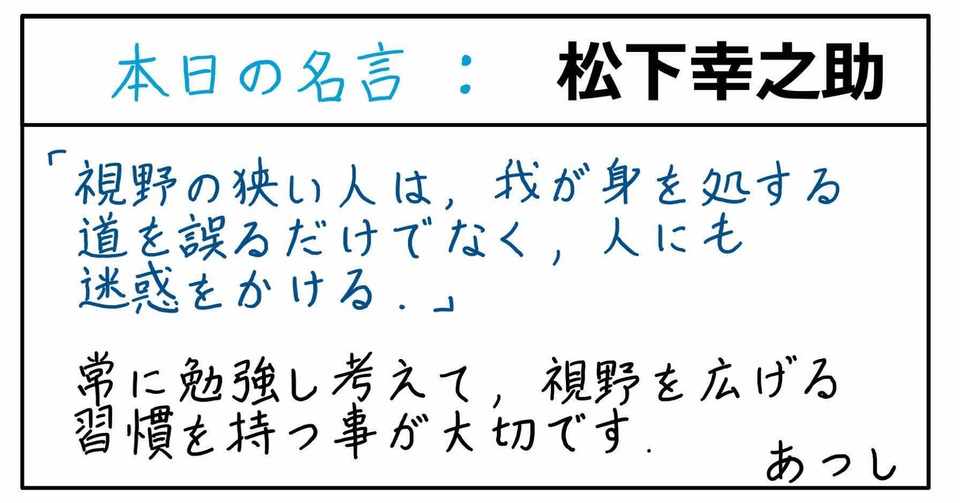 本日の名言: 松下幸之助
「視野の狭い人は, 我が身を処する
道を誤るだけでなく, 人にも
迷惑をかける.」
常に勉強し考えて, 視野を広げる
習慣を持つ事が大切です.
あつし